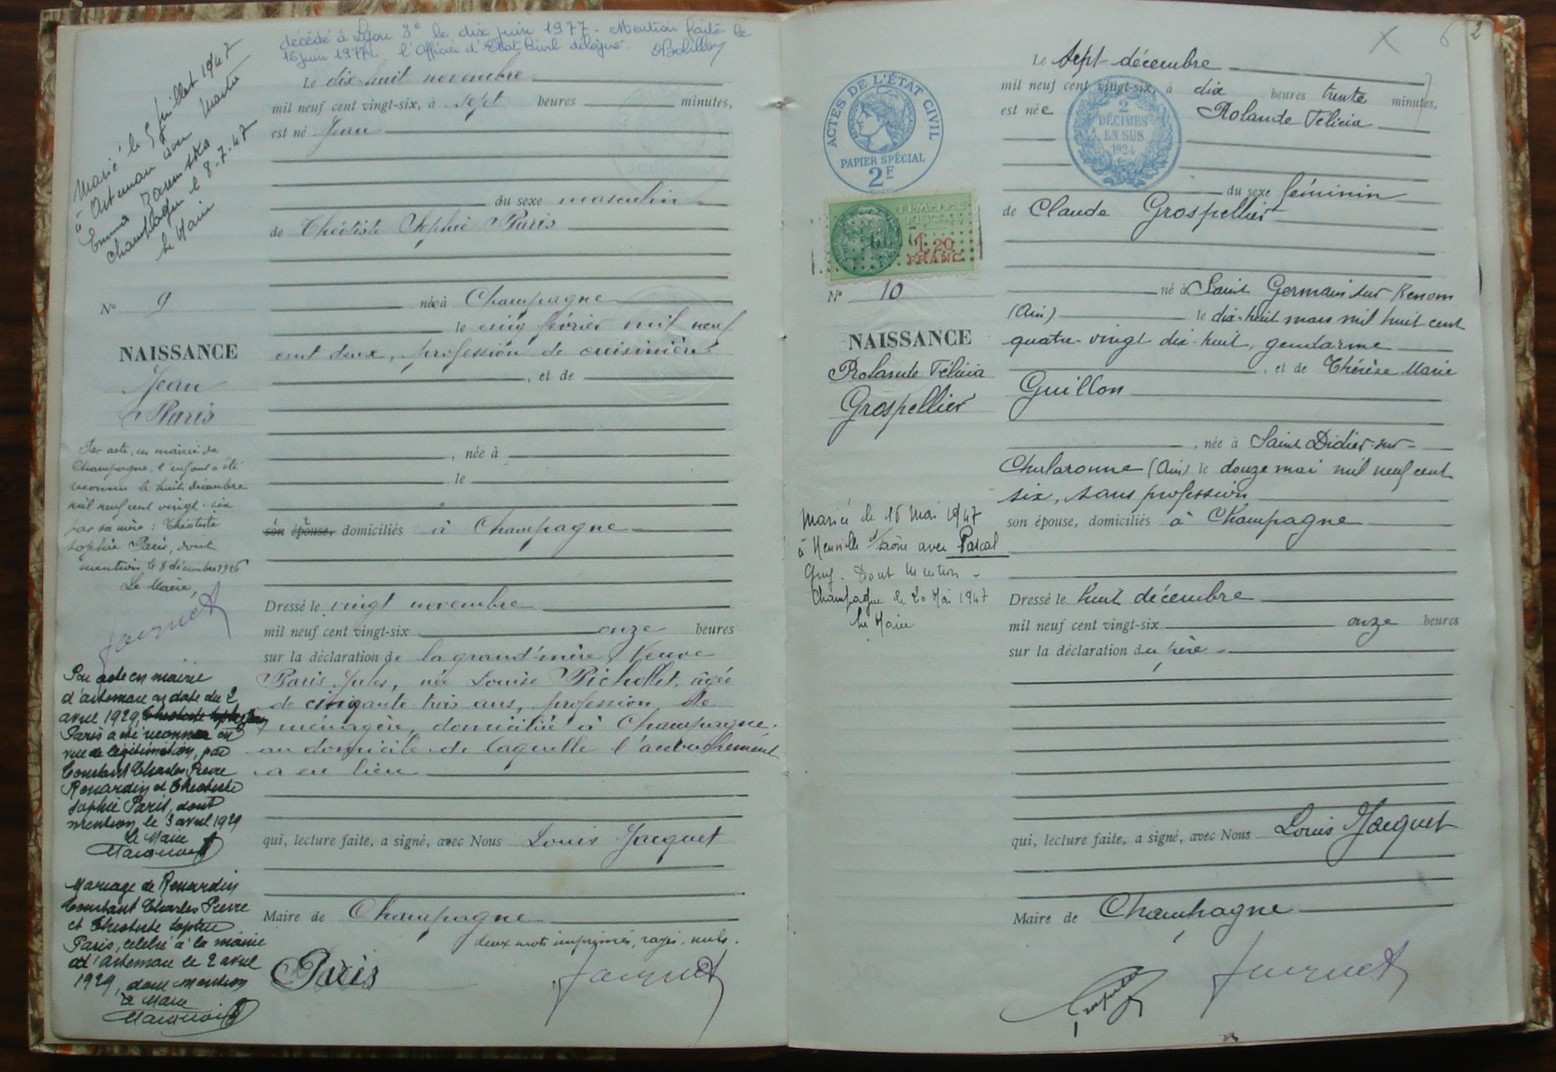 décédé à Lyon 3e le dix juin 1977. Mention faite le
16 juin 1977. l'Officier d'Etat Civil délégué.
Marié le 5 juillet 1947
à Artemare avec Marie
Emma
Champagne le 8-7-47
Le Maire
Le dix-huit novembre
mil neuf cent vingt-six, à sept heures minutes,
est né Jean
du sexe masculin
de Théotiste Sophie Paris
No 9
née à Champagne
le cinq février mil neuf
cent deux, profession de cuisinière
, et de
NAISSANCE
Jean
Paris
, née à
le
son épouse, domiciliés à Champagne
Par acte, en mairie de
Champagne, l'enfant a été
reconnu le huit décembre
mil neuf cent vingt-six
par sa mère : Théotiste
Sophie Paris, dont
mention, le 8 décembre 1926
Le Maire,
Jacquet
Dressé le vingt novembre
mil neuf cent vingt-six onze heures
sur la déclaration de la grand'mère Veuve
Paris Jules, née Louise Pichollet, âgée
de cinquante trois ans, profession de
ménagère, domiciliée à Champagne.
au domicile de laquelle l'accouchement
a eu lieu
qui, lecture faite, a signé, avec Nous Louis Jacquet
Maire de Champagne
deux mots imprimés, rayés, nuls.
Paris Jacquet
Par acte en mairie
d'Artemare en date du 2
avril 1929,
Paris a été reconnu en
vue de légitimation, par
Constant Charles Pierre
Renardin et Théotiste
Sophie Paris, dont
mention le 3 avril 1929
Le Maire
Mariage de Renardin
Constant Charles Pierre
et Théotiste Sophie
Paris, célébré à la mairie
d'Artemare le 2 avril
1929, dont mention
Le Maire
2
ACTES DE L'ÉTAT CIVIL
PAPIER SPÉCIAL
2F
2
DÉCIMES
EN SUS
1924
1,20
FRANC
Le Sept décembre
mil neuf cent vingt-six, à dix heures trente minutes,
est née Rolande Félicia
du sexe féminin
de Claude Grospellier
No 10
né à Saint Germain sur Renom
(Ain) le dix-huit mars mil huit cent
quatre-vingt dix-huit, gendarme
, et de Thérèse Marie
Guillon
NAISSANCE
Rolande Félicia
Grospellier
, née à Saint Didier-sur-
Chalaronne (Ain) le douze mai mil neuf cent
six, sans profession
son épouse, domiciliés à Champagne
Mariée le 16 Mai 1947
à Neuville s/Saône avec Pascal
Guy. Dont Mention -
Champagne le 20 Mai 1947
Le Maire
Dressé le huit décembre
mil neuf cent vingt-six onze heures
sur la déclaration du père
qui, lecture faite, a signé, avec Nous Louis Jacquet
Maire de Champagne
Grospellier Jacquet